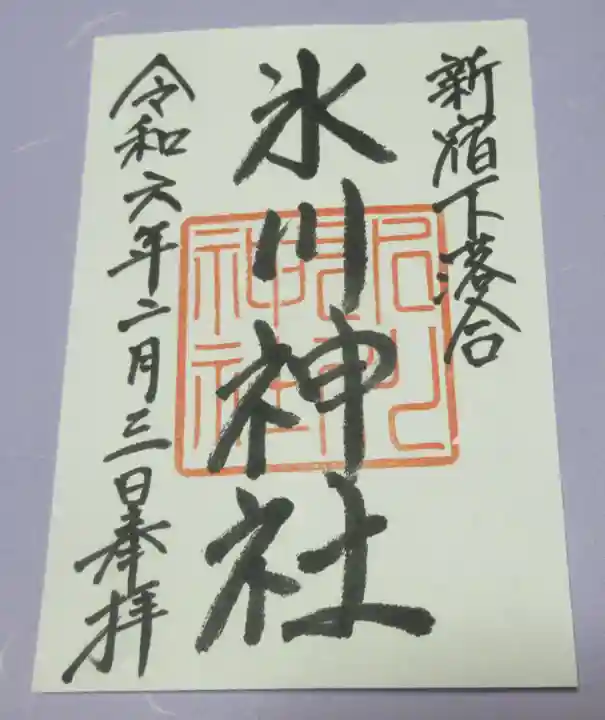 新宿下落合
氷川神社
令和六年二月三日奉拝